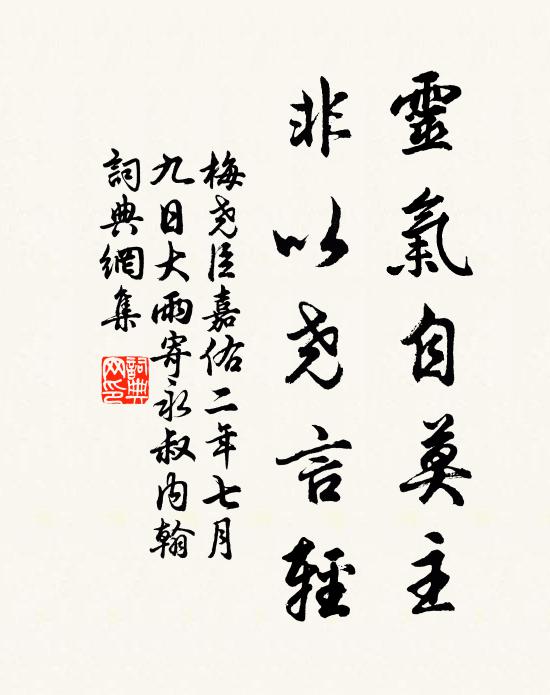 靈氣自莫主
非以尧言輕
梅尧臣嘉佑二年七月
九日大雨寄永叔内翰
詞典網集
詞典网印